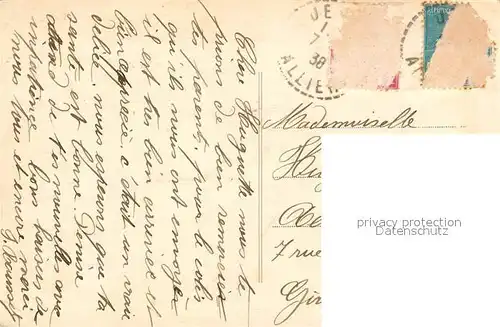 Chère Huguette nous te
prions de bien remercier
tes parents pour le colis
qu'il nous ont envoyer
il est très bien arrivée et
bien apprécié, c'était un vrai
délice. nous espérons que ta
santé est bonne Denise
attend de tes nouvelles avec
impatience. bons baisers de
nous tous et encore merci
JE
1
7
38
ALLIER
A
Mademoiselle
7 rue
privacy protection
Datenschutz